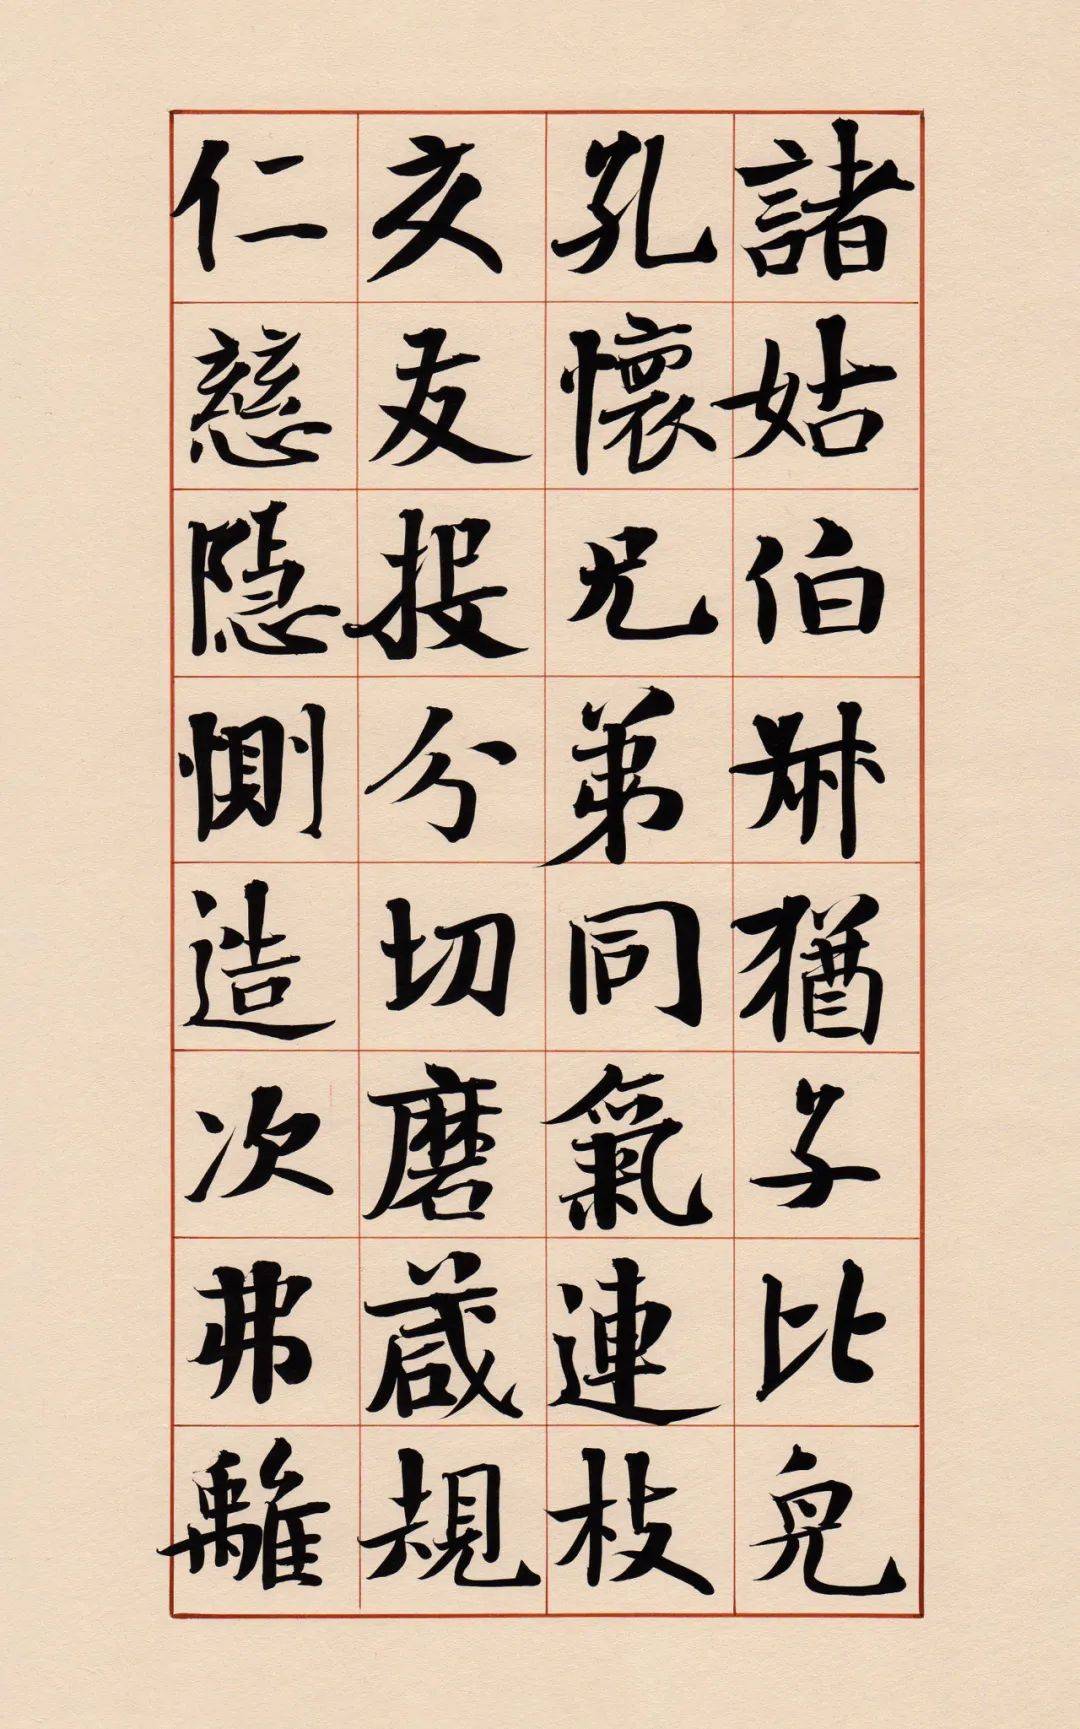 諸姑伯叔猶子比兒
孔懷兄弟同氣連枝
交友投分切磨箴規
仁慈隱惻造次弗離